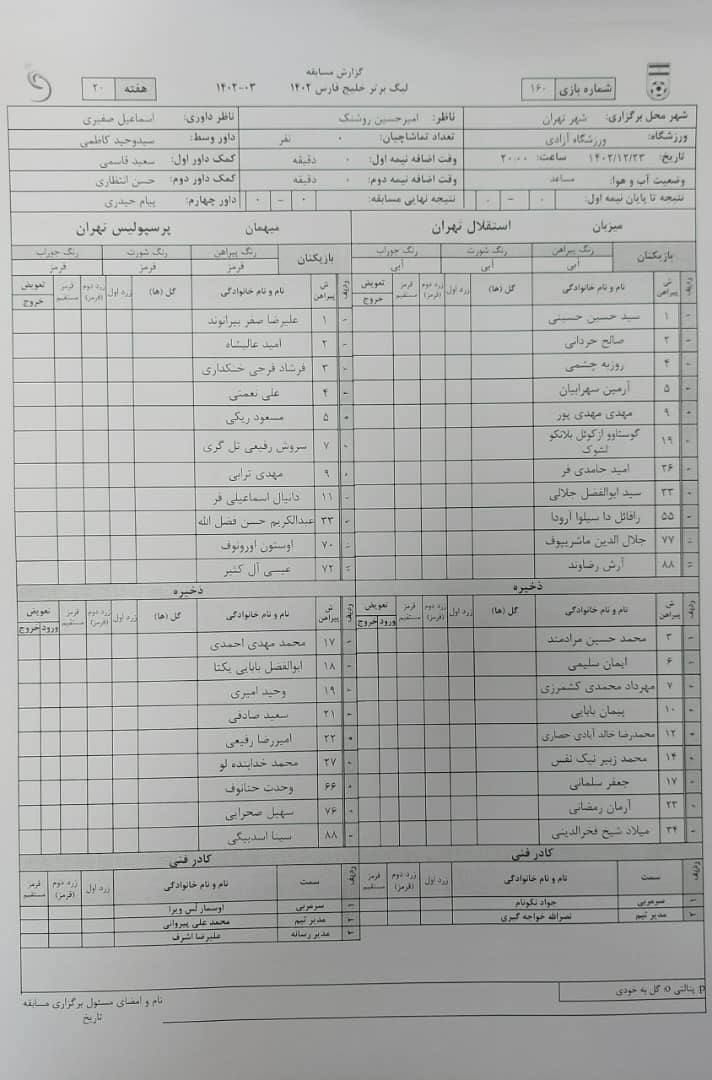 گزارش مسابقه
لیگ برتر خلیج فارس ۱۴۰۲ ۰۳-۱۴۰۲
شماره بازی ۱۶۰
هفته ۲۰
شهر محل برگزاری: شهر تهران ناظر: امیرحسین روشنک ناظر داوری: اسماعیل صفیری
ورزشگاه: ورزشگاه آزادی تعداد تماشاچیان: ۰ نفر داور وسط: سیدوحید کاظمی
تاریخ: ۱۴۰۲/۱۲/۲۳ ساعت: ۲۰:۰۰ وقت اضافه نیمه اول: ۰ دقیقه کمک داور اول: سعید قاسمی
وضعیت آب و هوا: مساعد وقت اضافه نیمه دوم: ۰ دقیقه کمک داور دوم: حسن انتظاری
نتیجه تا پایان نیمه اول: ۰ - ۰ نتیجه نهایی مسابقه: ۰ - ۰ داور چهارم: پیام حیدری
میزبان استقلال تهران
بازیکنان رنگ پیراهن رنگ شورت رنگ جوراب
آبی آبی آبی
ردیف ش پیراهن نام و نام خانوادگی گل (ها) زرد اول زرد دوم (قرمز) قرمز مستقیم تعویض خروج
۱ سید حسین حسینی
۲ صالح حردانی
۴ روزبه چشمی
۵ آرمین سهرابیان
۹ مهدی مهدی پور
۱۹ گوستاوو ازکوئل بلانکو لشوک
۲۶ امید حامدی فر
۳۳ سید ابوالفضل جلالی
۵۵ رافائل دا سیلوا آرودا
۷۷ جلال الدین ماشریپوف
۸۸ آرش رضاوند
ذخیره
ردیف ش پیراهن نام و نام خانوادگی گل (ها) زرد اول زرد دوم (قرمز) قرمز مستقیم تعویض ورود خروج
۳ محمد حسین مرادمند
۶ ایمان سلیمی
۷ مهرداد محمدی کشمرزی
۱۰ پیمان بابایی
۱۲ محمدرضا خالد آبادی حصاری
۱۴ محمد زبیر نیک نفس
۱۷ جعفر سلمانی
۲۳ آرمان رمضانی
۳۴ میلاد شیخ فخرالدینی
کادر فنی
ردیف سمت نام و نام خانوادگی زرد اول زرد دوم (قرمز) قرمز مستقیم
۱ سرمربی جواد نکونام
۲ مدیر تیم نصرالله خواجه گیری
میهمان پرسپولیس تهران
بازیکنان رنگ پیراهن رنگ شورت رنگ جوراب
قرمز قرمز قرمز
ردیف ش پیراهن نام و نام خانوادگی گل (ها) زرد اول زرد دوم (قرمز) قرمز مستقیم تعویض خروج
۱ علیرضا صفر بیرانوند
۲ امید عالیشاه
۳ فرشاد فرجی خنکداری
۴ علی نعمتی
۵ مسعود ریکی
۷ سروش رفیعی تل گری
۹ مهدی ترابی
۱۱ دانیال اسماعیلی فر
۳۳ عبدالکریم حسن فضل الله
۷۰ اوستون اورونوف
۷۲ عیسی آل کثیر
ذخیره
ردیف ش پیراهن نام و نام خانوادگی گل (ها) زرد اول زرد دوم (قرمز) قرمز مستقیم تعویض ورود خروج
۱۷ محمد مهدی احمدی
۱۸ ابوالفضل بابایی یکتا
۱۹ وحید امیری
۲۱ سعید صادقی
۲۲ امیررضا رفیعی
۲۷ محمد خدابنده لو
۶۶ وحدت حنانوف
۷۶ سهیل صحرایی
۸۸ سینا اسدبیگی
کادر فنی
ردیف سمت نام و نام خانوادگی زرد اول زرد دوم (قرمز) قرمز مستقیم
۱ سرمربی اوسمار لس ویرا
۲ مدیر تیم محمد علی پیروانی
۳ مدیر رسانه علیرضا اشرف
p: پنالتی o: گل به خودی
نام و امضای مسئول برگزاری مسابقه
تاریخ